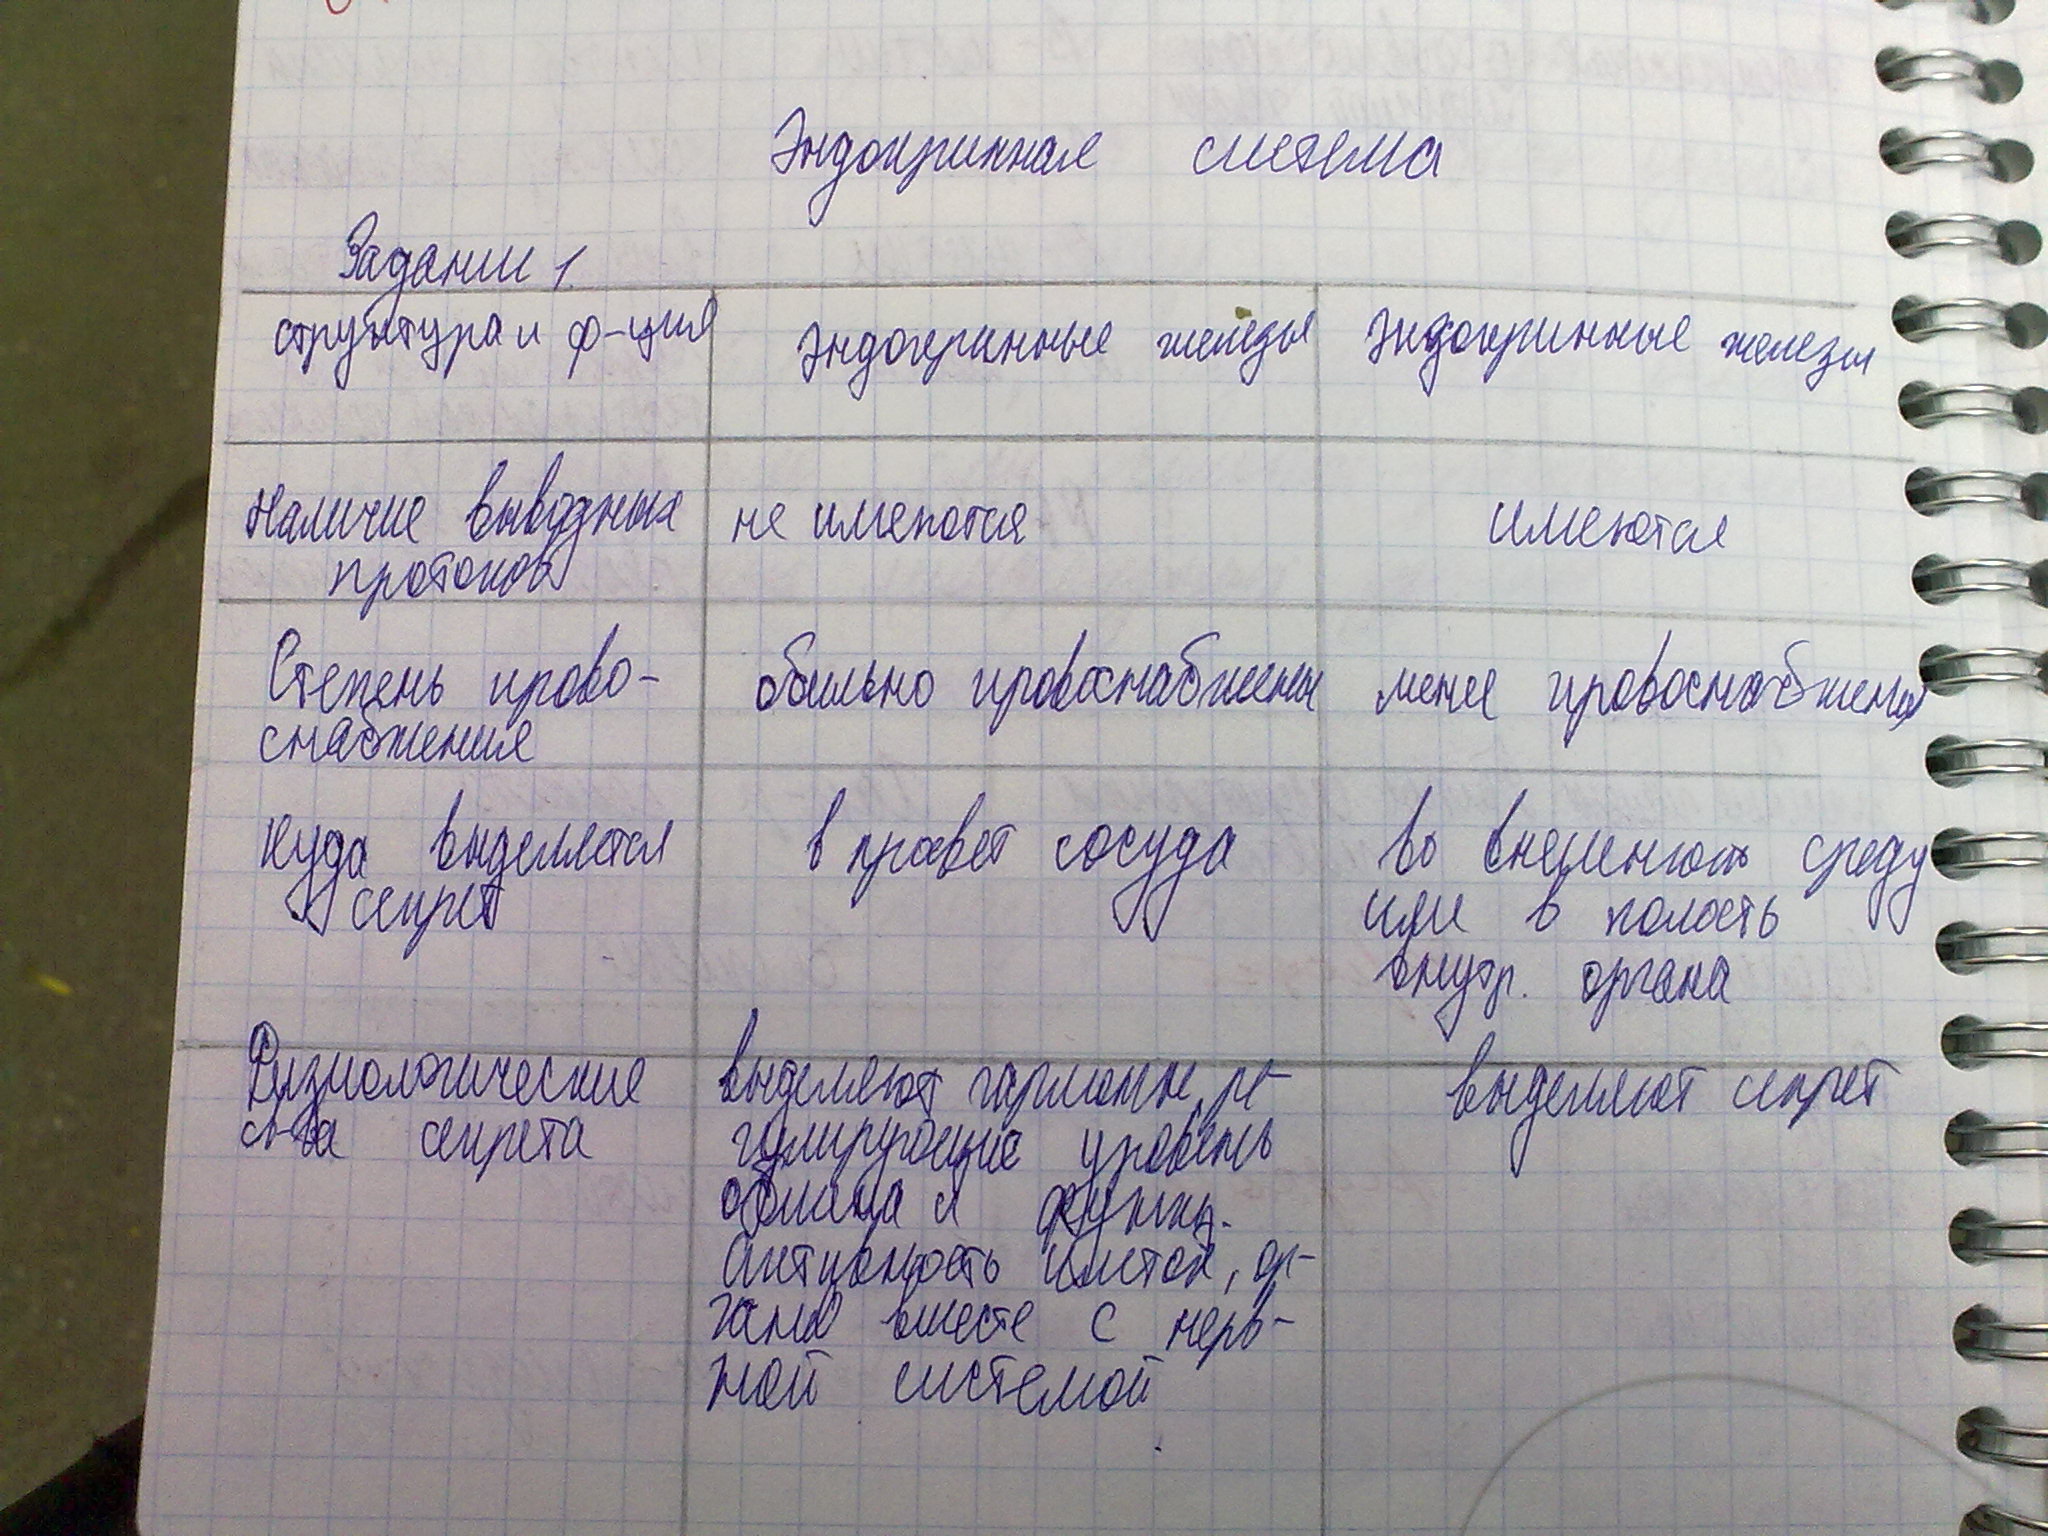 Эндокринная система
Задание 1.
структура и ф-ция
эндокринные железы
эндокринные железы
Наличие выводных
протоков
не имеются
имеются
Степень крово-
снабжения
обильно кровоснабжены
менее кровоснабжены
куда выделяется
секрет
в просвет сосуда
во внешнюю среду
или в полость
внутр. органа
Физиологические
св-ва секрета
выделяют гормоны, ре-
гулирующие уровень
обмена и функц.
активность клеток, ор-
ганов вместе с нерв-
ной системой
выделяют секрет